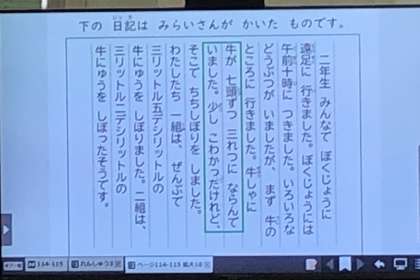 下の 日記は みらいさんが かいた ものです。
二年生 みんなで ぼくじょうに
遠足に 行きました。ぼくじょうには
午前十時に つきました。いろいろな
どうぶつが いましたが、まず 牛の
ところに 行きました。牛しゃに
牛が 七頭ずつ 三れつに ならんで
いました。少し こわかったけれど、
そこで ちちしぼりを しました。
わたしたち 一組は、ぜんぶで
三リットル五デシリットルの
牛にゅうを しぼりました。二組は、
三リットル二デシリットルの
牛にゅうを しぼったそうです。
114-115
れんしゅう3
ページ114-115 拡大10